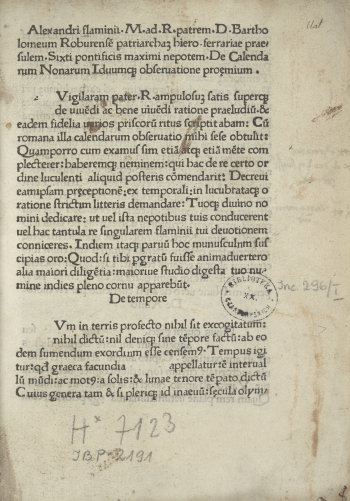 Alexandri flaminii. M. ad. R. patrem. D. Bartho
lomeum Roburensē patriarchaʒ hiero. ferrariae prae
sulem. Sixti pontificis maximi nepotem. De Calenda
rum Nonarum Iduumqꝫ obseruatione proemium.
Vigilaram pater. R. ampulosuʒ satis superqꝫ
de uiuēdi ac bene uiuēdi ratione praeludiū. &
eadem fidelia uarios priscorū ritus scriptitabam: Cū
romana illa calendarum obseruatio mihi sese obtulit:
Quamporro cum examussim etiā atqꝫ etiā mēte com
plecterer: haberemqꝫ neminem: qui hac de re certo or
dine luculenti aliquid posteris cōmendarit: Decreui
eamipsam pręceptionē: ex temporali: in lucubrataqꝫ o
ratione strictum litteris demandare: Tuoqꝫ diuino no
mini dedicare: ut uel ista nepotibus tuis conducerent
uel hac tantula re singularem flaminii tui deuotionem
conniceres. Indiem itaqꝫ paruū hoc munusculum sus
cipias oro: Quod: si tibi pgratū fuisse animaduertero
alia maiori diligētia: maioriue studio digesta tuo nu
mine indies pleno cornu apparebūt.
De tempore
Vm in terris profecto nihil sit excogitatum:
nihil dictū: nil deniqꝫ sine tēpore factū: ab eo
dem sumendum exordium esse censemꝯ. Tempus igi
tur: qd graeca facundia appellatur ē interual
lū mūdi: ac motꝯ: a solis: & lunae tenore tēpato dictū
Cuius genera tam & si pleriqꝫ id inaeuū: secula olym
Inc 296/I
BIBLIOTEKA
XX.
H* 7123
IBP. 2191